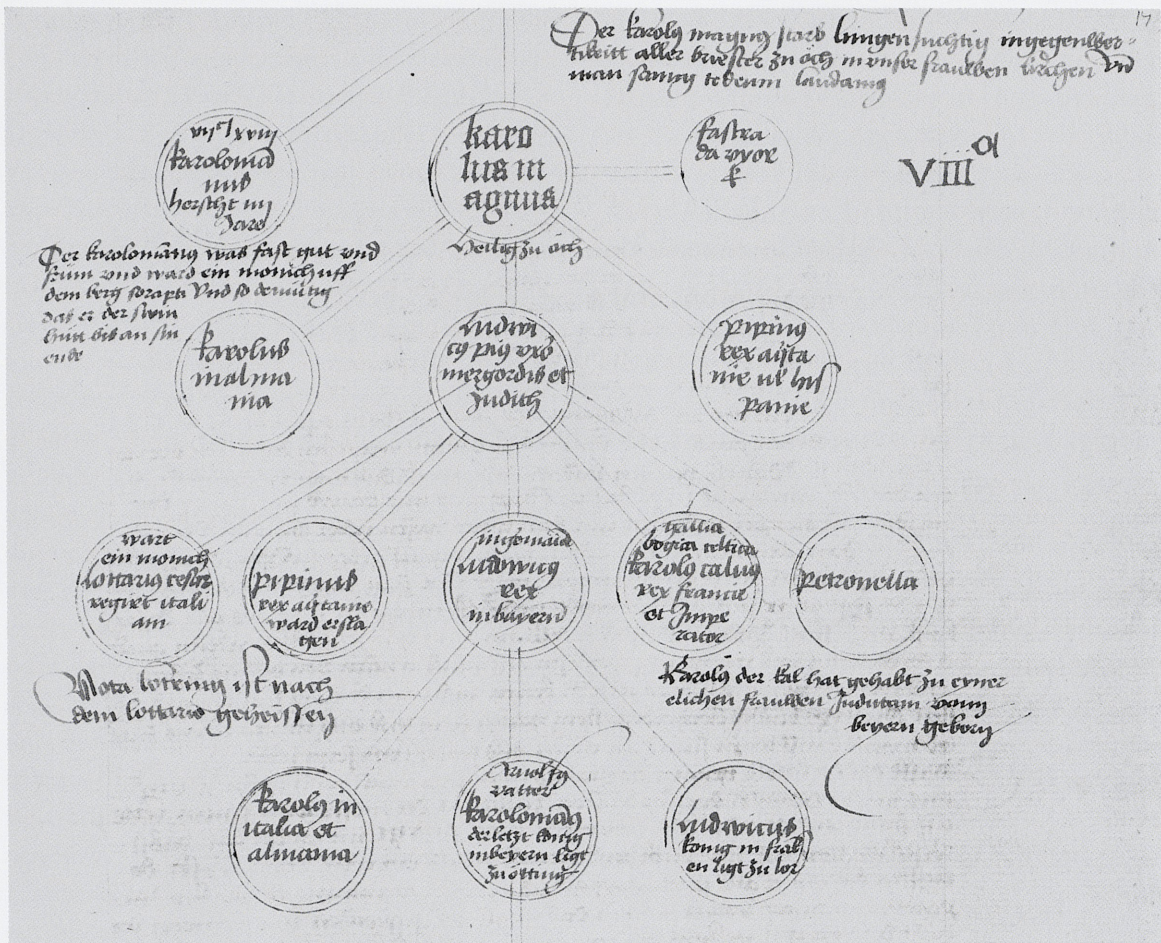 17
Der karolus magnus starb lungensuchtig ingegenwer-
tikeitt aller briester zu och in unser frauwen kirchen vnd
man sang tedeum laudamus
karolomā
nus
herscht iiij
Jare
karo
lus m
agnus
fastra
da vxor
VIII
heilig zu och
Der karolomānus was fast gut vnd
frum vnd ward ein monich uff
dem berg sorapti Vnd so demutig
das er der swin
hut bis an sin
ende
karolus
in alma
nia
ludwi
cus pius vxor
mergordis et
Judith
pipinus
rex aqta
nie ul his
panie
wart
ein monich
lottarius cesar
regiret itali
am
pipinus
rex aqtanie
ward ersla
gen
ludwicus
rex
in bayern
gallia
celtica
karolus calvus
rex francie
et Impe
rator
petronella
Nota lotring ist nach
dem lottario geheissen
Karolus der kal hat gehabt zu eyner
elichen frauwen Juditam vonn
beyern geborn
karolus in
italia et
almania
Arnolfus
vatter
karolomānus
der letzt konig
in beyern ligt
zu otting
ludwicus
konig in frāk
en ligt zu lor